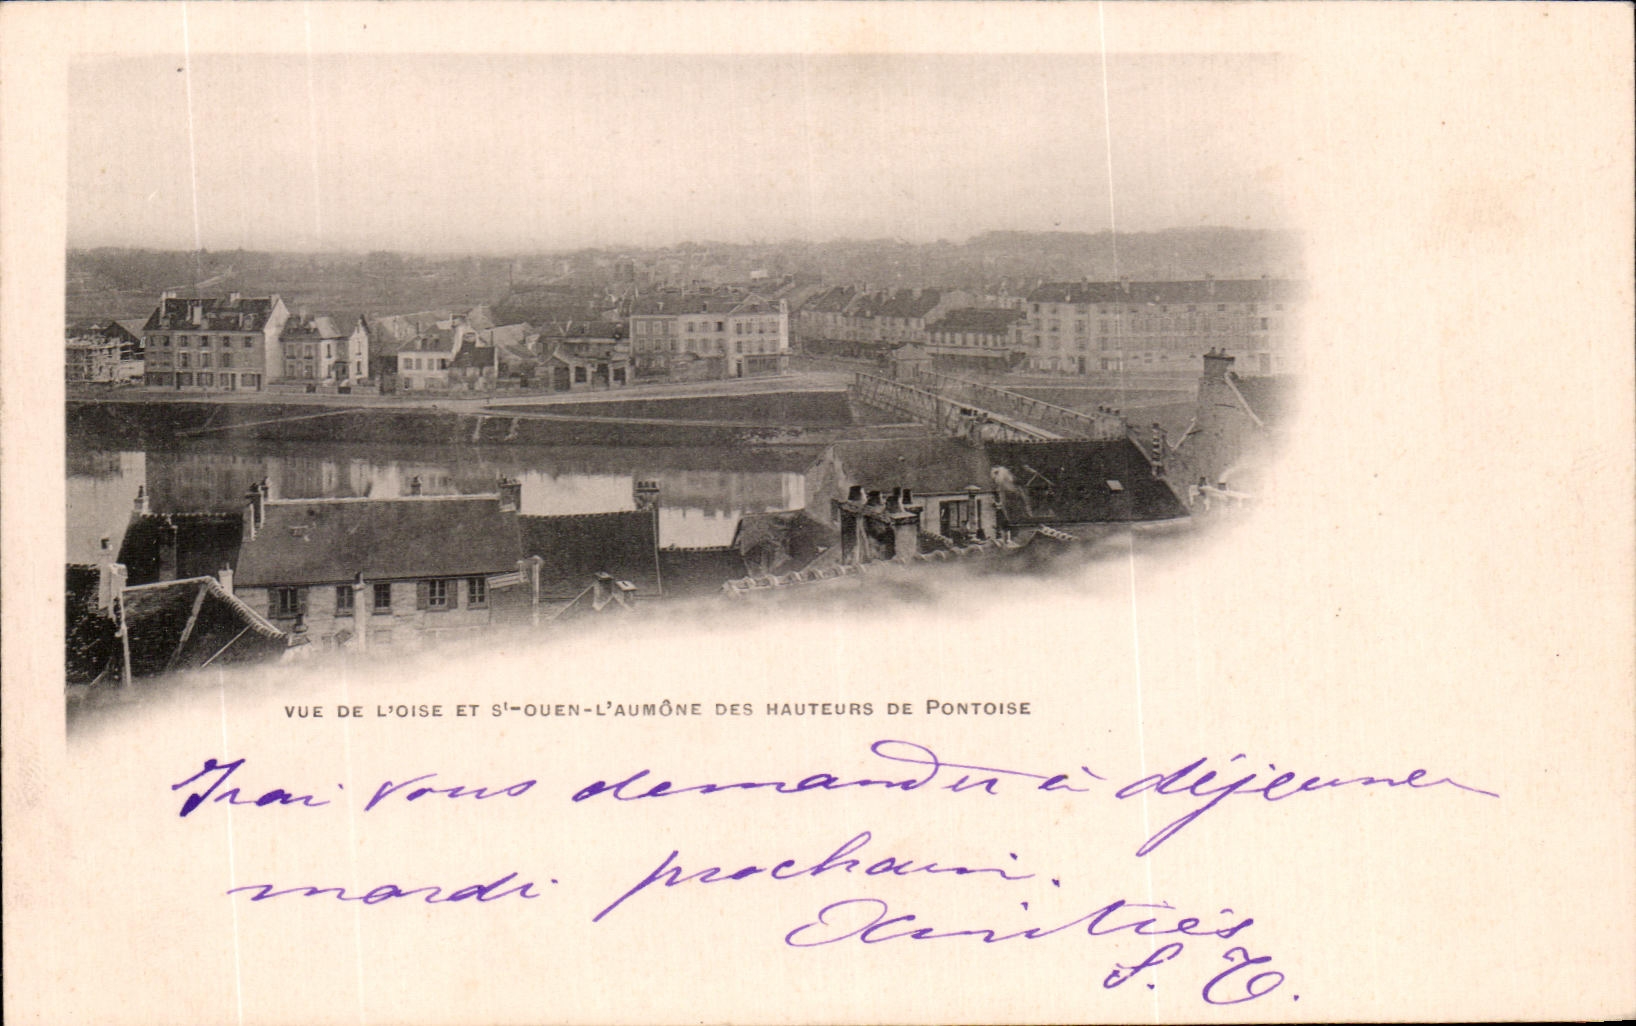 VUE DE L'OISE ET St-OUEN-L'AUMÔNE DES HAUTEURS DE PONTOISE
Irai vous demander à déjeuner
mardi prochain.
Amitiés
S. T.